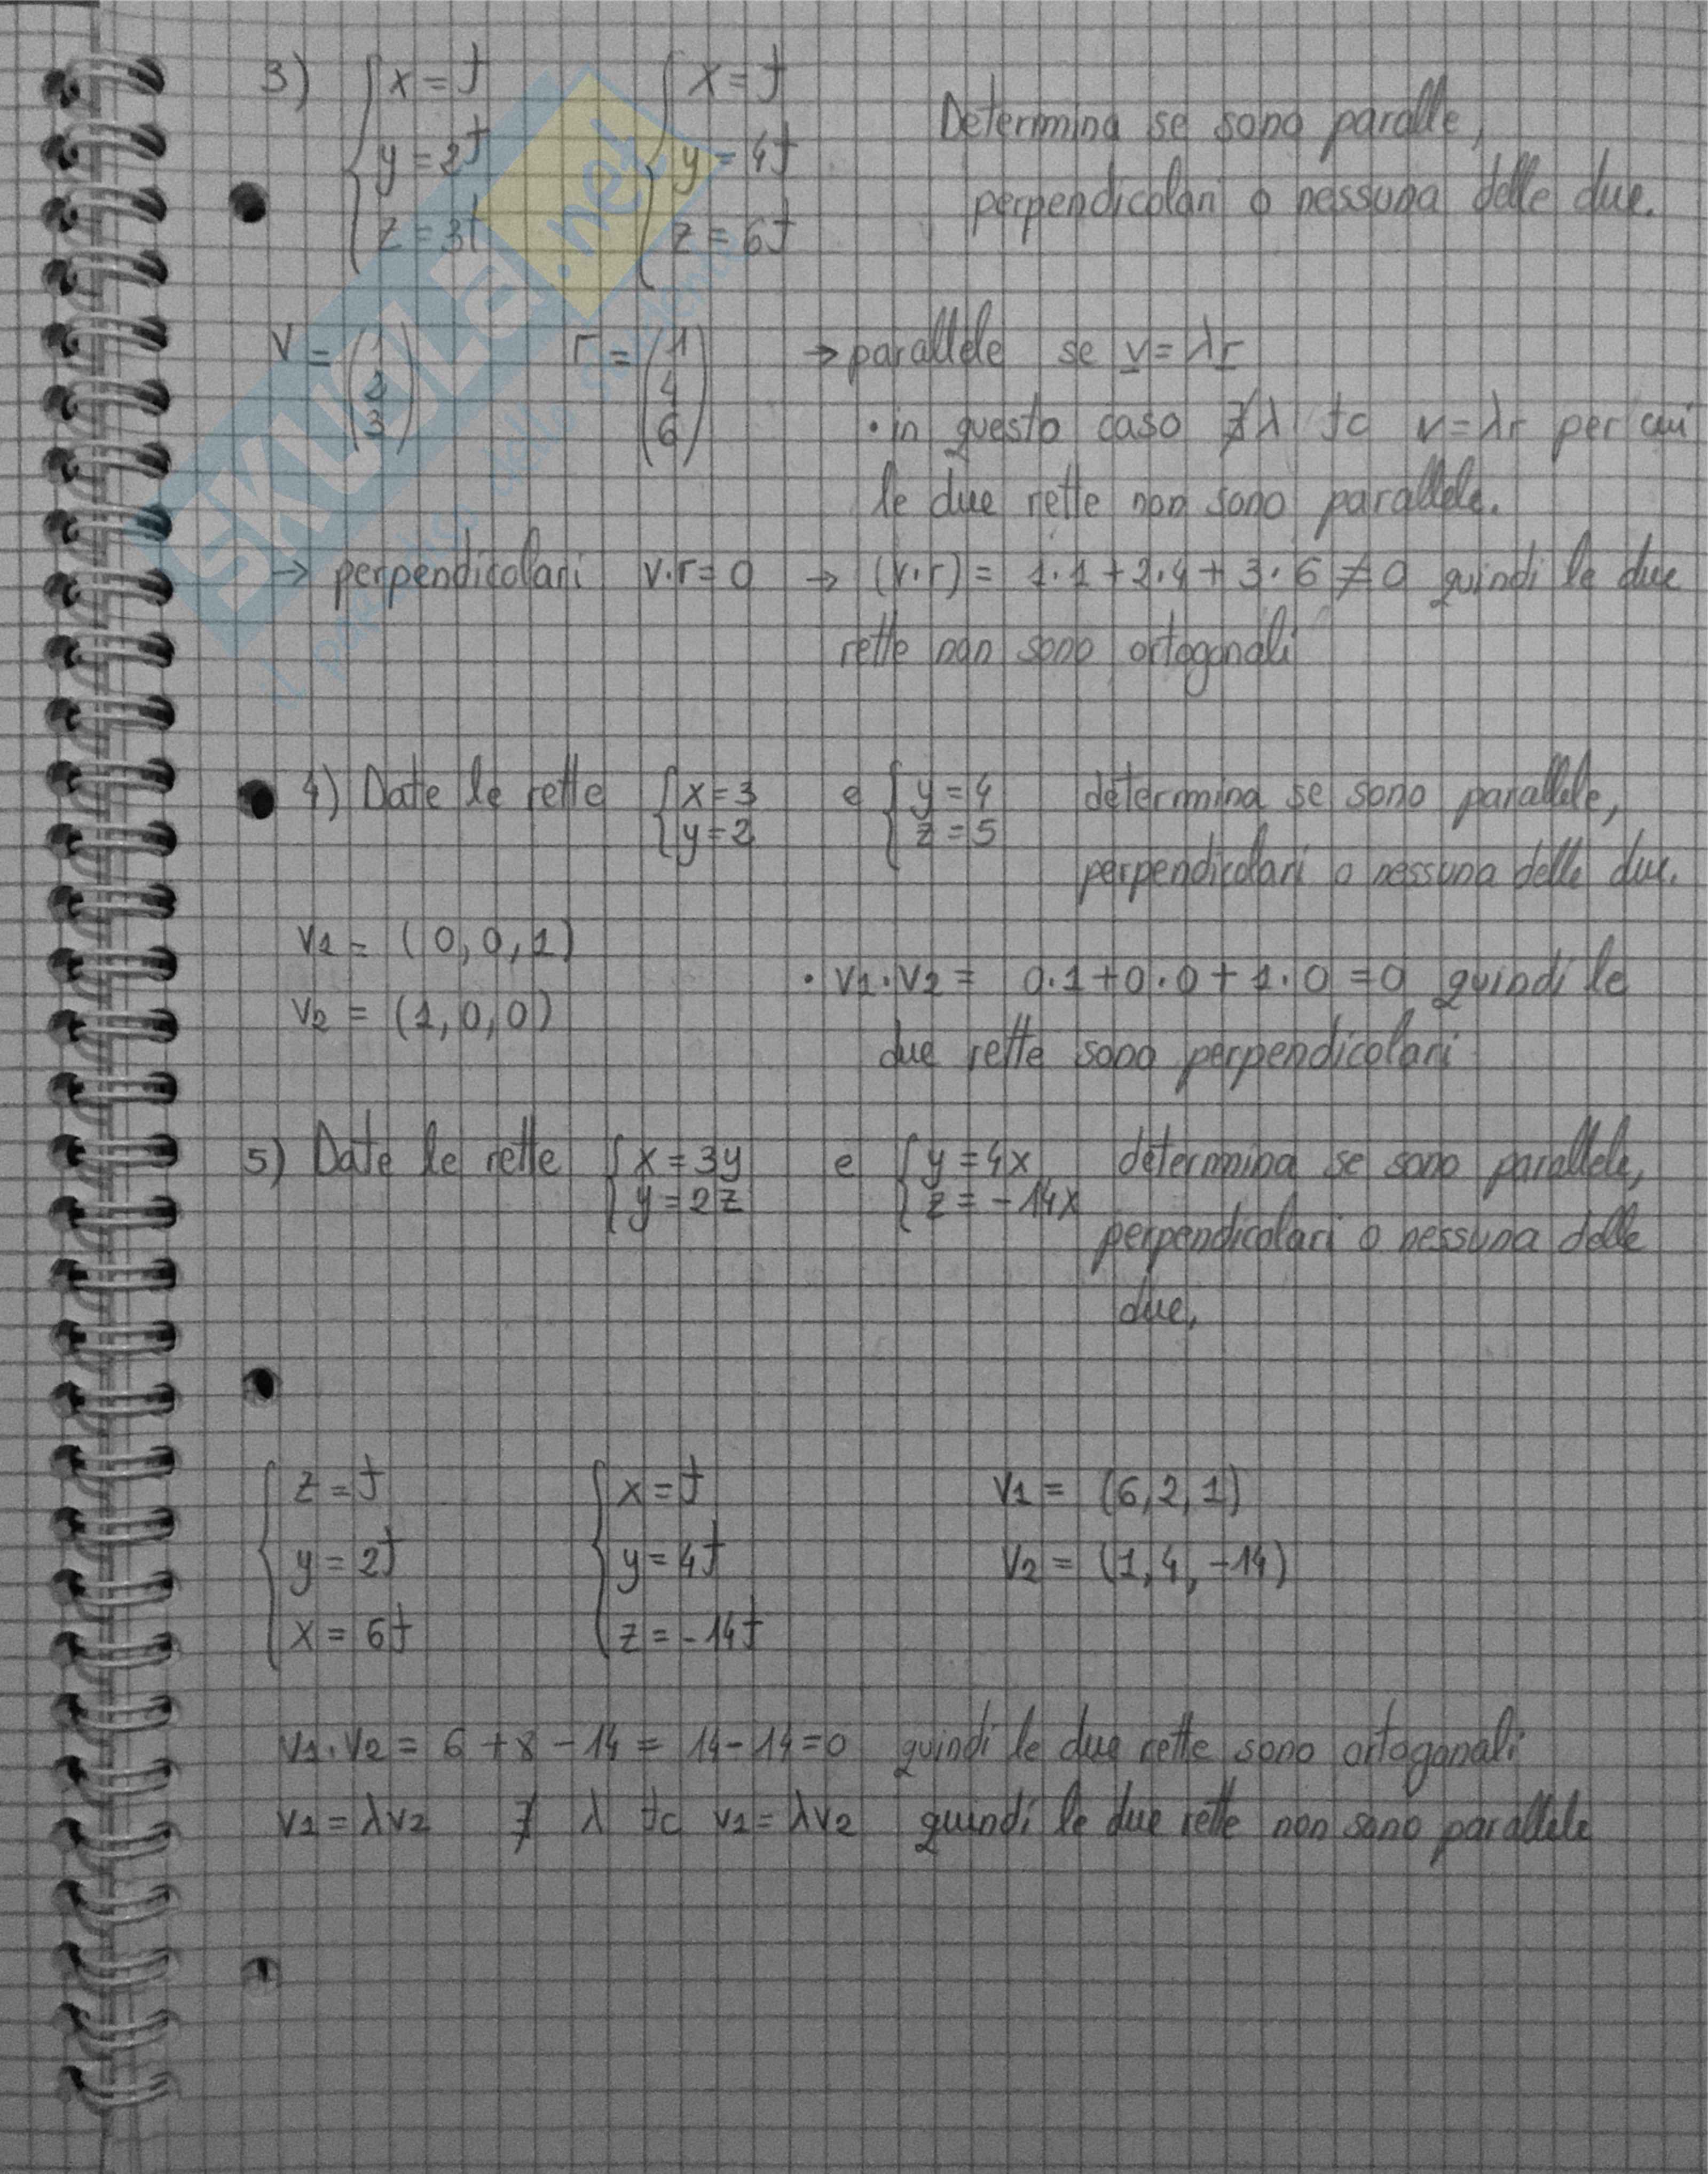 3) { x = t { x = t Determina se sono paralle,
y = 2t y = 4t perpendicolari o nessuna delle due.
z = 3t z = 6t
v = (1 2 3) r = (1 4 6) → parallele se v = λr
• in questo caso ∄λ tc v = λr per cui
le due rette non sono parallele.
→ perpendicolari v·r = 0 → (v·r) = 1·1 + 2·4 + 3·6 ≠ 0 quindi le due
rette non sono ortogonali
4) Date le rette { x = 3 e { y = 4 determina se sono parallele,
y = 2 z = 5 perpendicolari o nessuna delle due.
v1 = (0, 0, 1)
v2 = (1, 0, 0)
• v1·v2 = 0·1 + 0·0 + 1·0 = 0 quindi le
due rette sono perpendicolari
5) Date le rette { x = 3y e { y = 4x determina se sono parallele,
y = 2z z = -14x perpendicolari o nessuna delle
due,
{ z = t { x = t v1 = (6, 2, 1)
y = 2t y = 4t v2 = (1, 4, -14)
x = 6t z = -14t
v1·v2 = 6 + 8 - 14 = 14 - 14 = 0 quindi le due rette sono ortogonali
v1 = λv2 ∄ λ tc v1 = λv2 quindi le due rette non sono parallele
SKUOLa.net